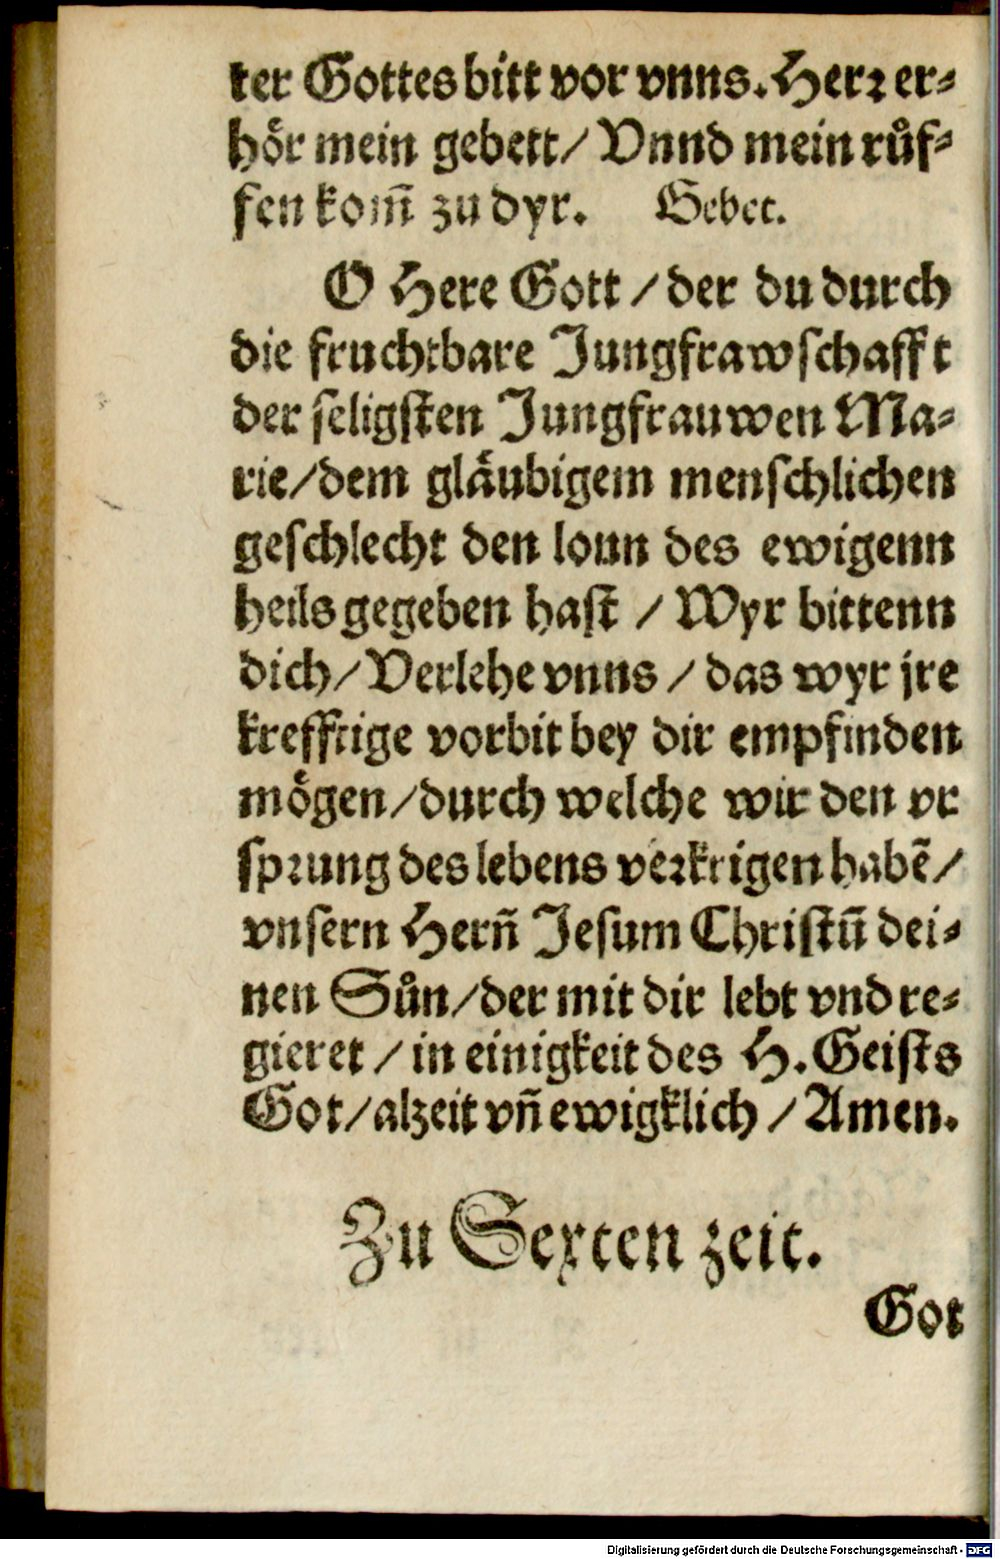 ter Gottes bitt vor vnns. Herꝛ er⸗
hoͤr mein gebett/ Vnnd mein ruͤf⸗
fen kom̃ zu dyr. Gebet.
O Here Gott / der du durch
die fruchtbare Jungfrawſchafft
der ſeligſten Jungfrauwen Ma⸗
rie/dem glaͤubigem menſchlichen
geſchlecht den loun des ewigenn
heils gegeben haſt / Wyr bittenn
dich/ Verlehe vnns / das wyr jre
krefftige vorbit bey dir empfinden
moͤgen/durch welche wir den vr
ſpꝛung des lebens veꝛkrigen habẽ/
vnſern Herñ Jeſum Chriſtũ dei⸗
nen Suͤn/der mit dir lebt vnd re⸗
gieret / in einigkeit des H. Geiſts
Got/alzeit vñ ewigklich / Amen.
Zu Sexten zeit.
Got
Digitalisierung gefördert durch die Deutsche Forschungsgemeinschaft - DFG